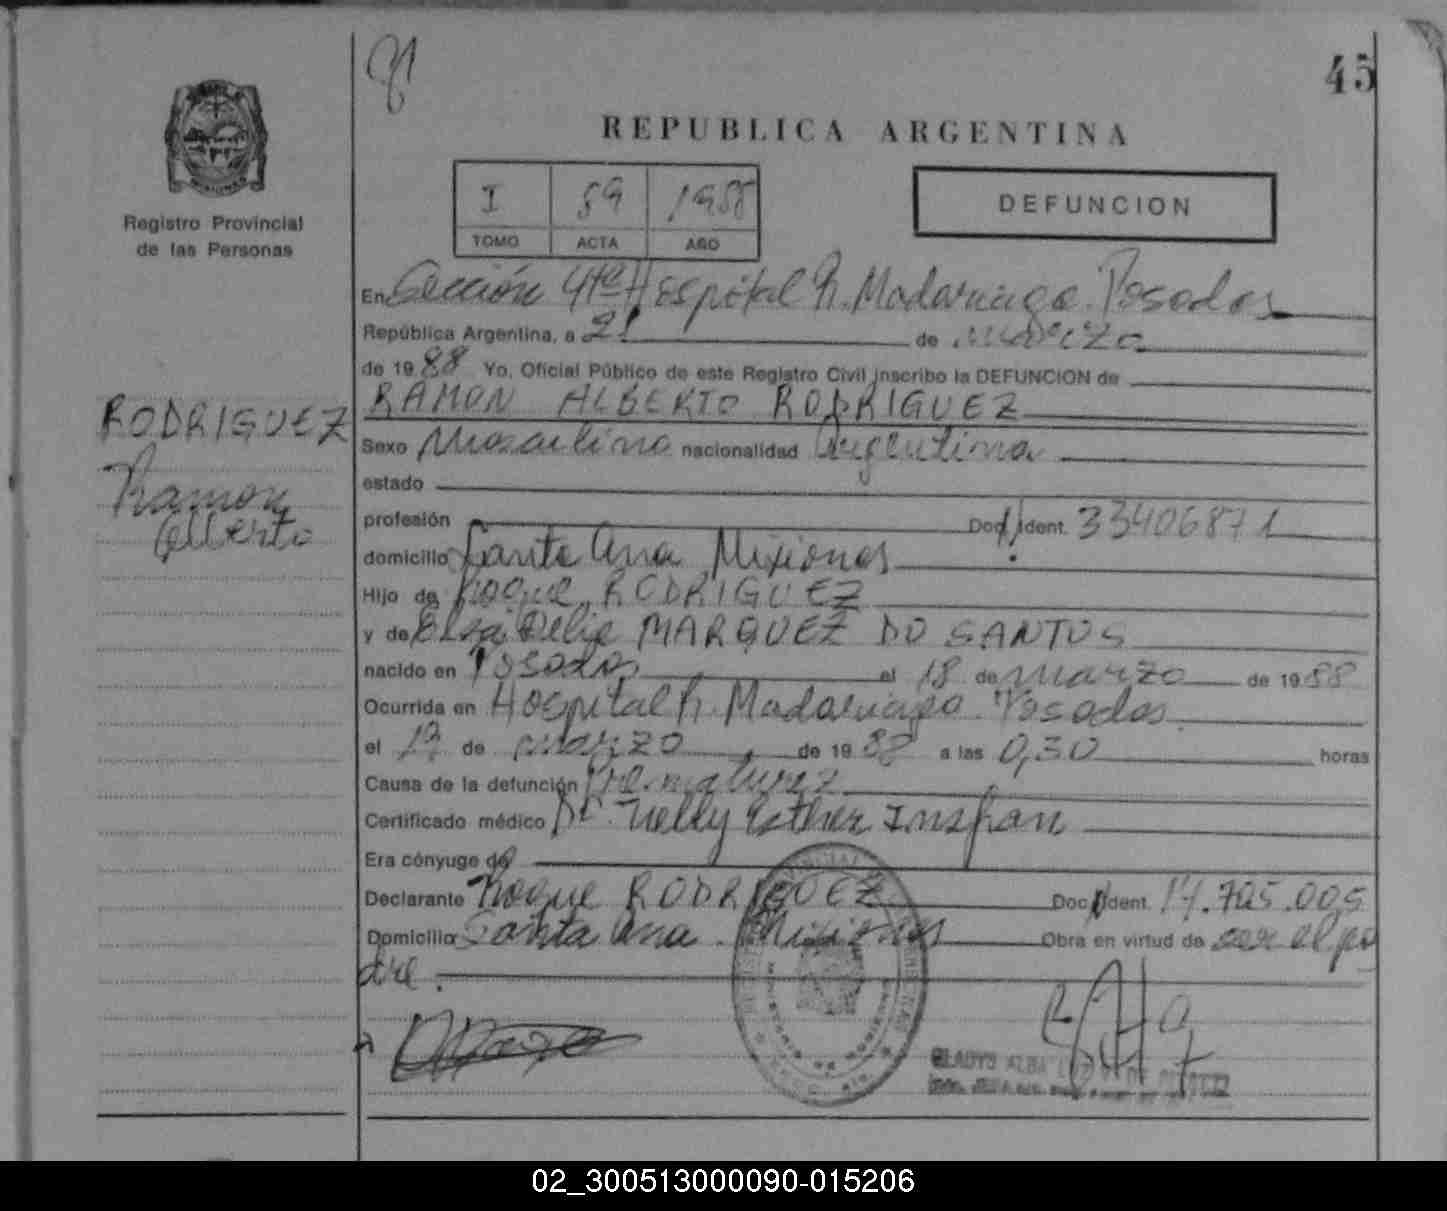 45
REPUBLICA ARGENTINA
I 89 1988
TOMO ACTA AÑO
DEFUNCION
Registro Provincial
de las Personas
RODRIGUEZ
Ramon
Alberto
En Sección 4ta Hospital R. Madariaga. Posadas
República Argentina, a 21 de marzo
de 1988 Yo, Oficial Público de este Registro Civil inscribo la DEFUNCION de
RAMON ALBERTO RODRIGUEZ
Sexo Masculino nacionalidad Argentina
estado
profesión Doc. Ident. 33406871
domicilio Santa Ana Misiones
Hijo de Roque RODRIGUEZ
y de Elsa Delia MARQUEZ DO SANTOS
nacido en Posadas el 18 de marzo de 1988
Ocurrida en Hospital R. Madariaga. Posadas
el 19 de marzo de 1988 a las 0,30 horas
Causa de la defunción Prematurez
Certificado médico Dr. Nelly Esther Insfran
Era cónyuge de
Declarante Roque RODRIGUEZ Doc. Ident. 14.795.005
Domicilio Santa Ana. Misiones Obra en virtud de ser el pa
dre.
GLADYS ALBA
02_300513000090-015206